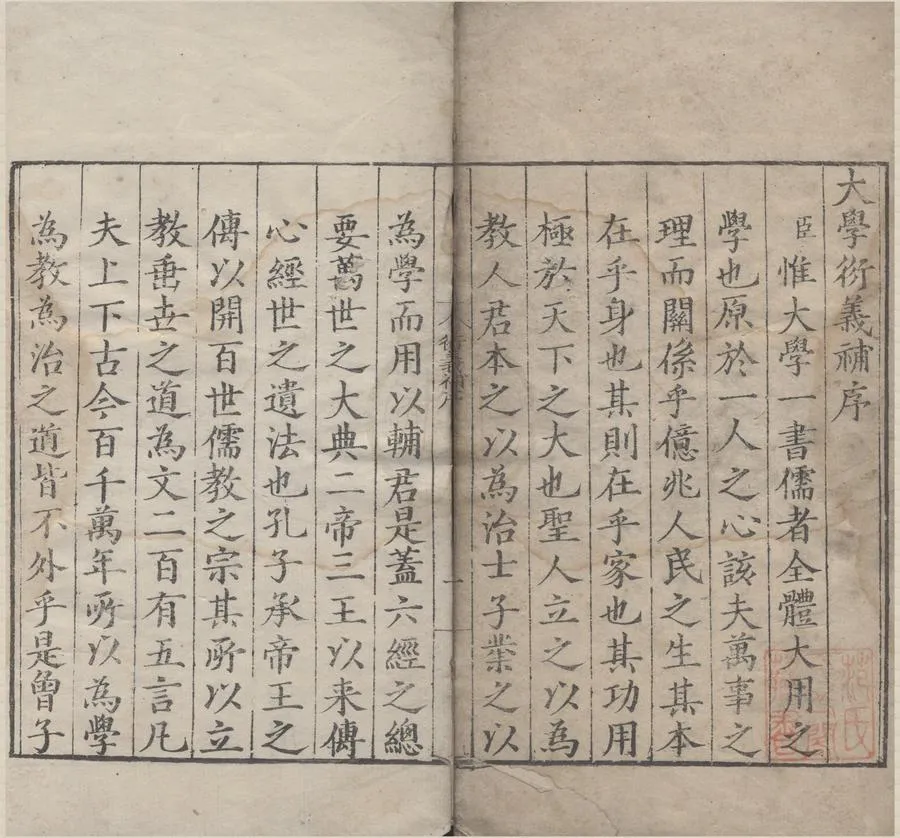 大學衍義補序
臣惟大學一書儒者全體大用之
學也原於一人之心該夫萬事之
理而關係乎億兆人民之生其本
在乎身也其則在乎家也其功用
極於天下之大也聖人立之以為
教人君本之以為治士子業之以
為學而用以輔君是蓋六經之總
要萬世之大典二帝三王以来傳
心經世之遺法也孔子承帝王之
傳以開百世儒教之宗其所以立
教垂世之道為文二百有五言凡
夫上下古今百千萬年所以為學
為教為治之道皆不外乎是曾子